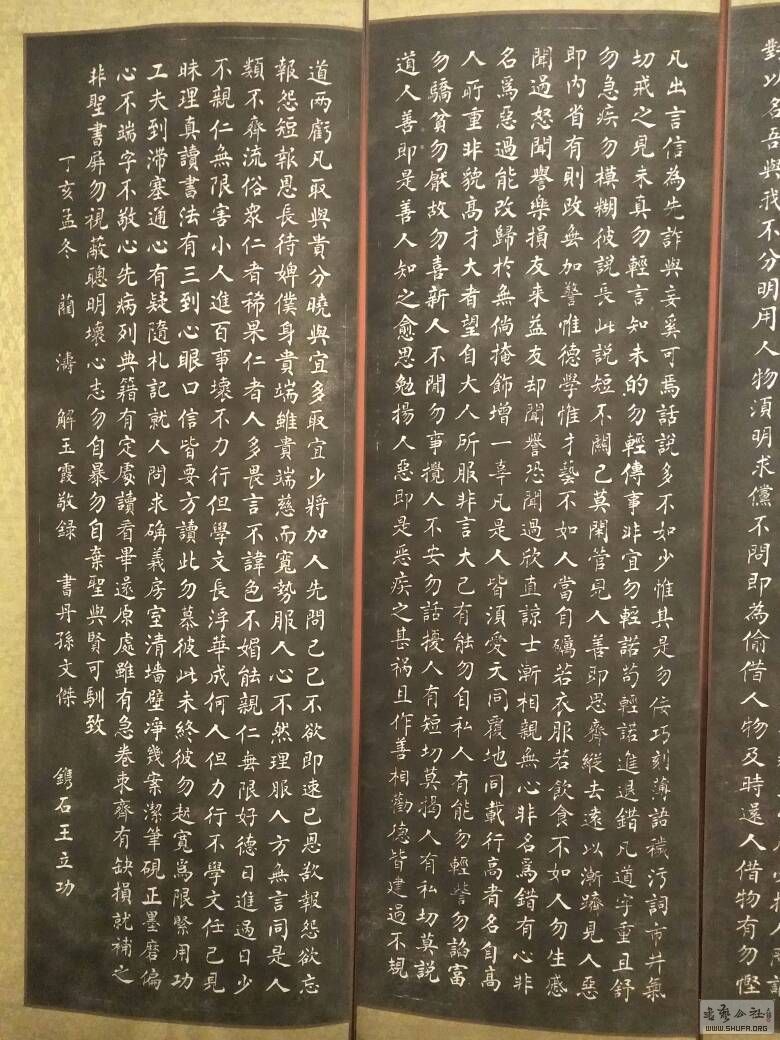 對以名吾與我不分明用人物須明求儻不問即為偷借人物及時還人借物有勿慳
凡出言信為先詐與妄奚可焉話說多不如少惟其是勿佞巧刻薄語穢污詞市井氣
切戒之見未真勿輕言知未的勿輕傳事非宜勿輕諾苟輕諾進退錯凡道字重且舒
勿急疾勿模糊彼說長此說短不關己莫閑管見人善即思齊縱去遠以漸躋見人惡
即內省有則改無加警惟德學惟才藝不如人當自礪若衣服若飲食不如人勿生慼
聞過怒聞譽樂損友来益友却聞譽恐聞過欣直諒士漸相親無心非名為錯有心非
名為惡過能改歸於無倘掩飾增一辜凡是人皆須愛天同覆地同載行高者名自高
人所重非貌高才大者望自大人所服非言大己有能勿自私人有能勿輕訾勿諂富
勿驕貧勿厭故勿喜新人不閒勿事攪人不安勿話擾人有短切莫揭人有私切莫說
道人善即是善人知之愈思勉揚人惡即是惡疾之甚禍且作善相勸德皆建過不規
道兩虧凡取與貴分曉與宜多取宜少將加人先問己己不欲即速已恩欲報怨欲忘
報怨短報恩長待婢僕身貴端雖貴端慈而寬勢服人心不然理服人方無言同是人
類不齊流俗衆仁者稀果仁者人多畏言不諱色不媚能親仁無限好德日進過日少
不親仁無限害小人進百事壞不力行但學文長浮華成何人但力行不學文任己見
昧理真讀書法有三到心眼口信皆要方讀此勿慕彼此未終彼勿起寬為限緊用功
工夫到滯塞通心有疑隨札記就人問求确義房室清墻壁淨幾案潔筆硯正墨磨偏
心不端字不敬心先病列典籍有定處讀看畢還原處雖有急卷束齊有缺損就補之
非聖書屏勿視蔽聰明壞心志勿自暴勿自棄聖與賢可馴致
丁亥孟冬 藺濤 解玉霞敬録 書丹孫文傑 鐫石王立功
WWW.SHUFA.ORG